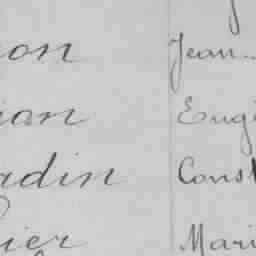 on Jean
ian Eugè
rdin Const
ier Mari